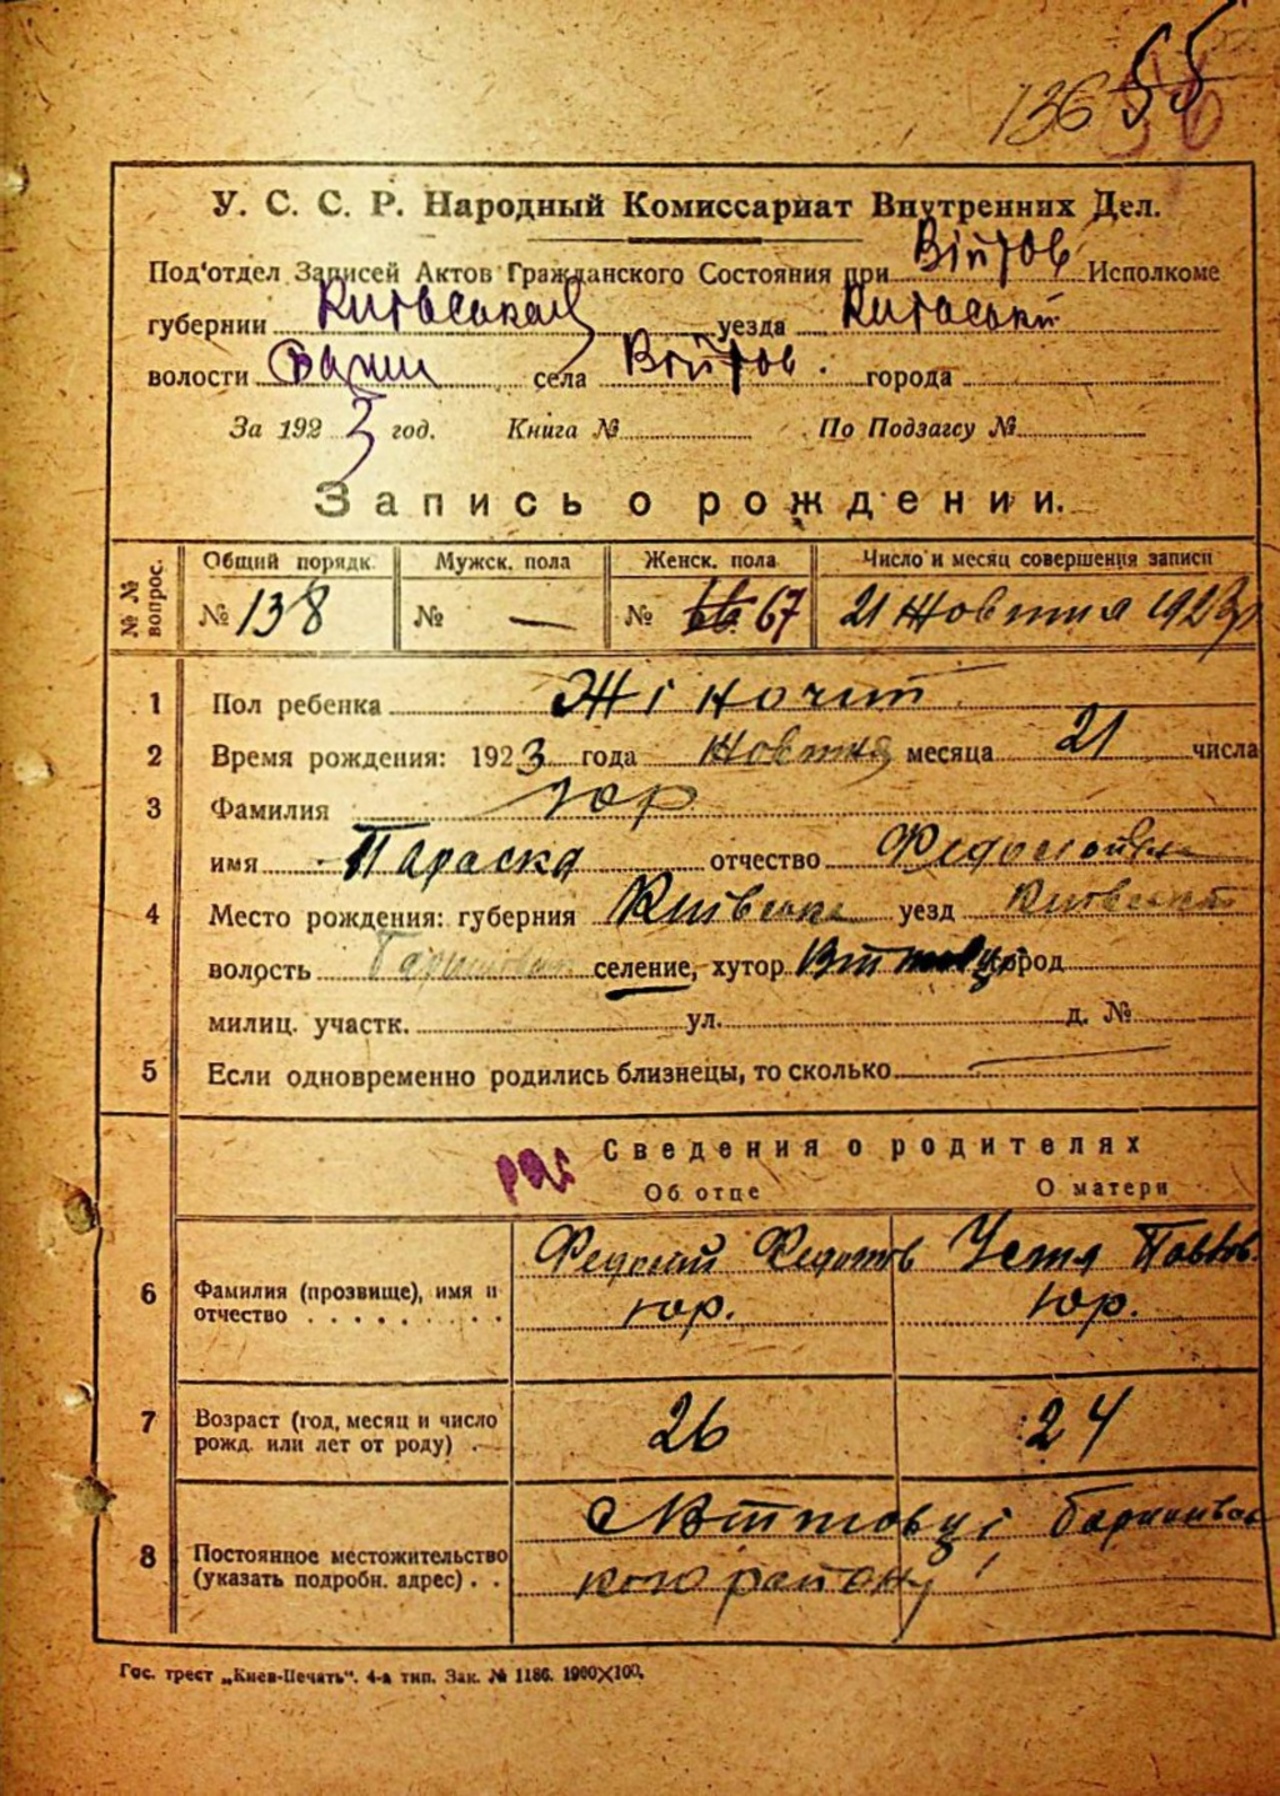 136 55
У. С. С. Р. Народный Комиссариат Внутренних Дел.
Под'отдел Записей Актов Гражданского Состояния при Війтов Исполкоме
губернии уезда
волости села Войтов. города
За 1923 год. Книга № По Подзагсу №
Запись о рождении.
№ № вопрос. Общий порядк. Мужск. пола Женск. пола Число и месяц совершения записи
№ 138 № — № 66 67 21 Жовтня 1923 р
1 Пол ребенка Жіночит
2 Время рождения: 1923 года Жовтня месяца 21 числа
3 Фамилия Юр
имя Параска отчество
4 Место рождения: губерния Київська уезд Київський
волость селение, хутор город
милиц. участк. ул. д. №
5 Если одновременно родились близнецы, то сколько —
Сведения о родителях
Об отце О матери
6 Фамилия (прозвище), имя и Федосій Федотов Устя Павлов.
отчество . . . . . . . . . Юр. Юр.
7 Возраст (год, месяц и число
рожд. или лет от роду) . 26 24
8 Постоянное местожительство
(указать подробн. адрес) . . кого району
Гос. трест „Киев-Печать“. 4-а тип. Зак. № 1186. 1900×100.